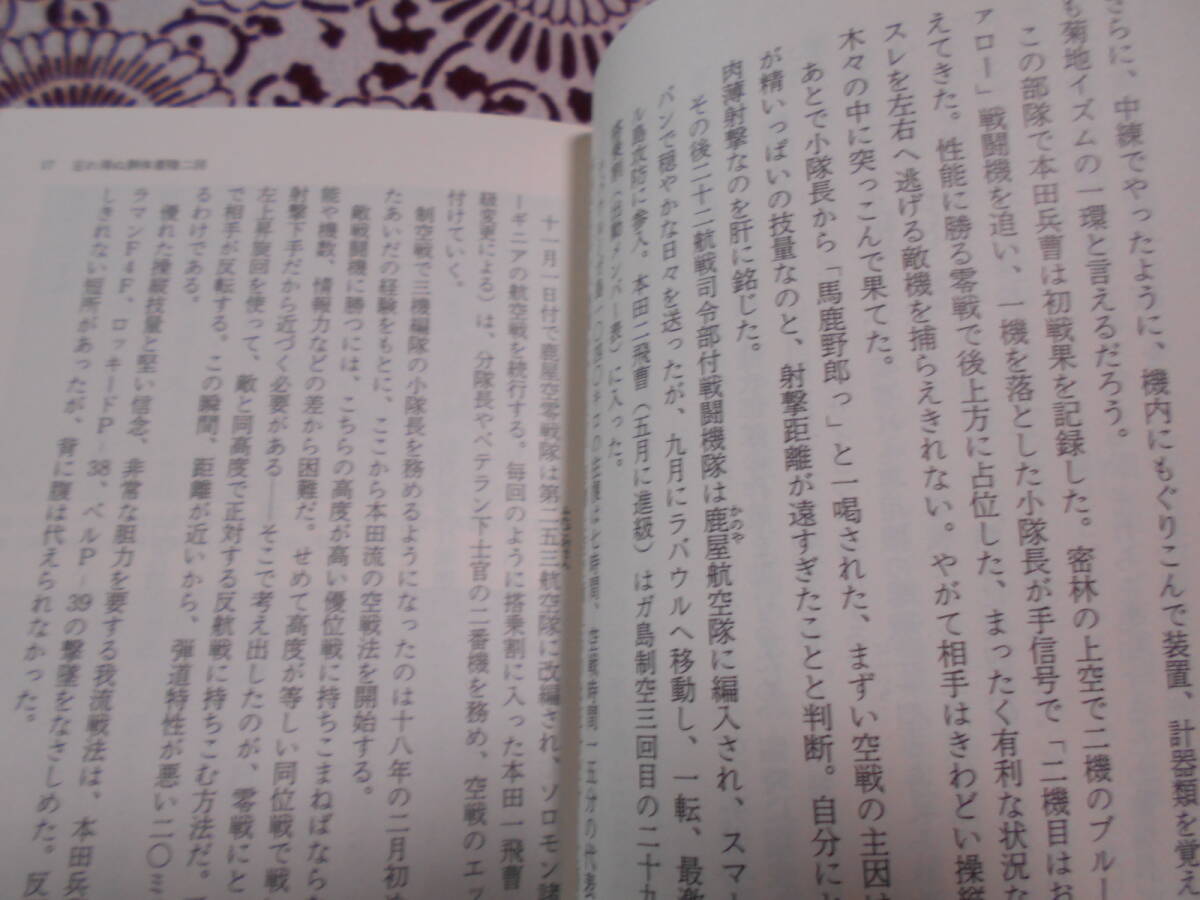 さらに、中練でやったように、機内にもぐりこんで装置、計器類を覚え
も菊地イズムの一環と言えるだろう。
この部隊で本田兵曹は初戦果を記録した。密林の上空で二機のブルー
ァロー」戦闘機を追い、一機を落とした小隊長が手信号で「二機目はお
えてきた。性能に勝る零戦で後上方に占位した、まったく有利な状況な
スレを左右へ逃げる敵機を捕らえきれない。やがて相手はきわどい操縦
木々の中に突っこんで果てた。
あとで小隊長から「馬鹿野郎っ」と一喝された、まずい空戦の主因は
が精いっぱいの技量なのと、射撃距離が遠すぎたことと判断。自分に
肉薄射撃なのを肝に銘じた。
その後二十二航戦司令部付戦闘機隊は鹿屋航空隊に編入され、スマ
かのや
バンで穏やかな日々を送ったが、九月にラバウルへ移動し、一転、最激
ル島攻防に参入。本田二飛曹（五月に進級）はガ島制空三回目の二十九
搭乗割（出動メンバー表）に入った。
17
十一月一日付で鹿屋空零戦隊は第二五三航空隊に改編され、ソロモン諸
ーギニアの航空戦を続行する。毎回のように搭乗割に入った本田一飛曹
級変更による）は、分隊長やベテラン下士官の二番機を務め、空戦のエッ
付けていく。
制空戦で三機編隊の小隊長を務めるようになったのは十八年の二月初め
たあいだの経験をもとに、ここから本田流の空戦法を開始する。
敵戦闘機に勝つには、こちらの高度が高い優位戦に持ちこまねばなら
能や機数、情報力などの差から困難だ。せめて高度が等しい同位戦で戦い
射撃下手だから近づく必要がある――そこで考え出したのが、零戦に
左上昇旋回を使って、敵と同高度で正対する反航戦に持ちこむ方法だ。
で相手が反転する。この瞬間、距離が近いから、弾道特性が悪い二〇ミ
るわけである。
優れた操縦技量と堅い信念、非常な胆力を要する我流戦法は、本田兵
ラマンF4F、ロッキードP-38、ベルP-39の撃墜をなさしめた。反
しきれない短所があったが、背に腹は代えられなかった。